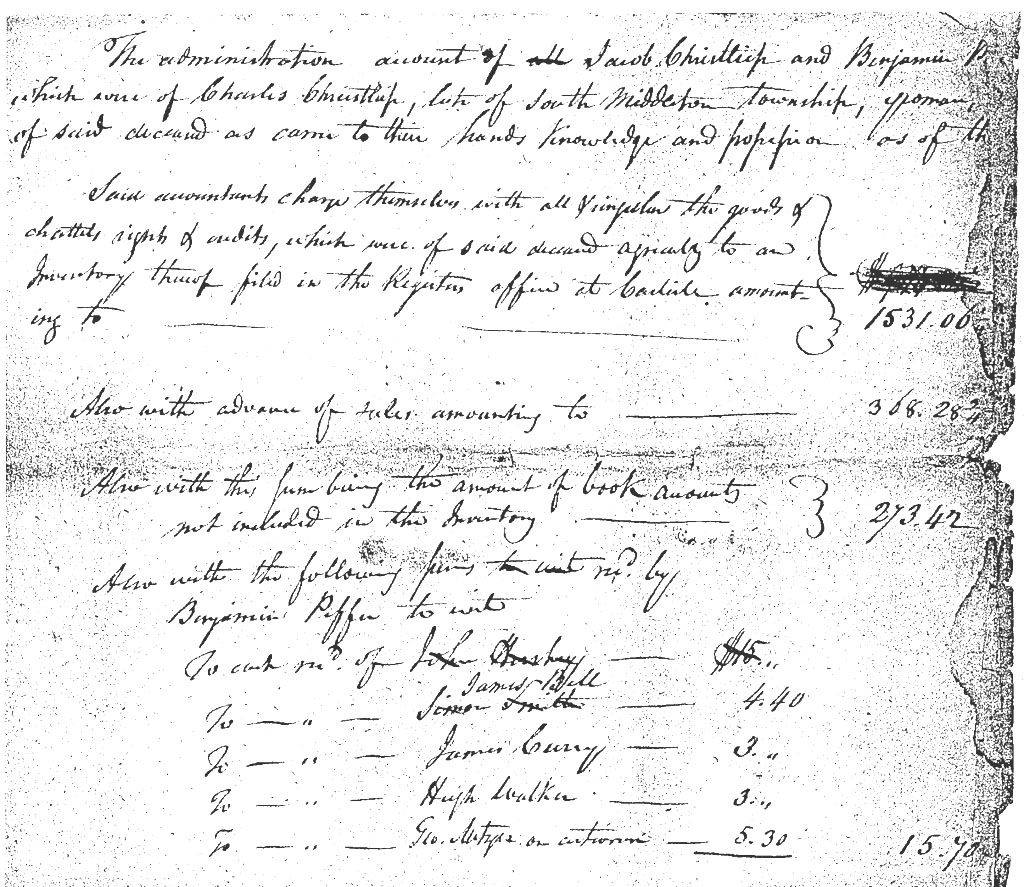 The administration account of all Jacob Christlip and Benjamin P
which were of Charles Christlip, late of South Middleton township, yeoman,
of said deceased as came to their hands knowledge and possession as of th
Said accountants charge themselves with all & singular the goods &
chattels rights & credits, which were of said deceased agreeably to an
Inventory thereof filed in the Registers office at Carlisle amount-
ing to 1531.06
Also with advance of sales amounting to 368.28
Also with this sum being the amount of book accounts
not included in the Inventory 273.42
Also with the following sums to wit recd. by
Benjamin Peffer to wit
To cash recd. of John Hershey $15 "
James Bell
To — " — Simon Smith — 4.40
To — " — James Curry — 3. "
To — " — Hugh Walker — 3. "
To — " — Geo. Metzgar on — 5.30 15.70